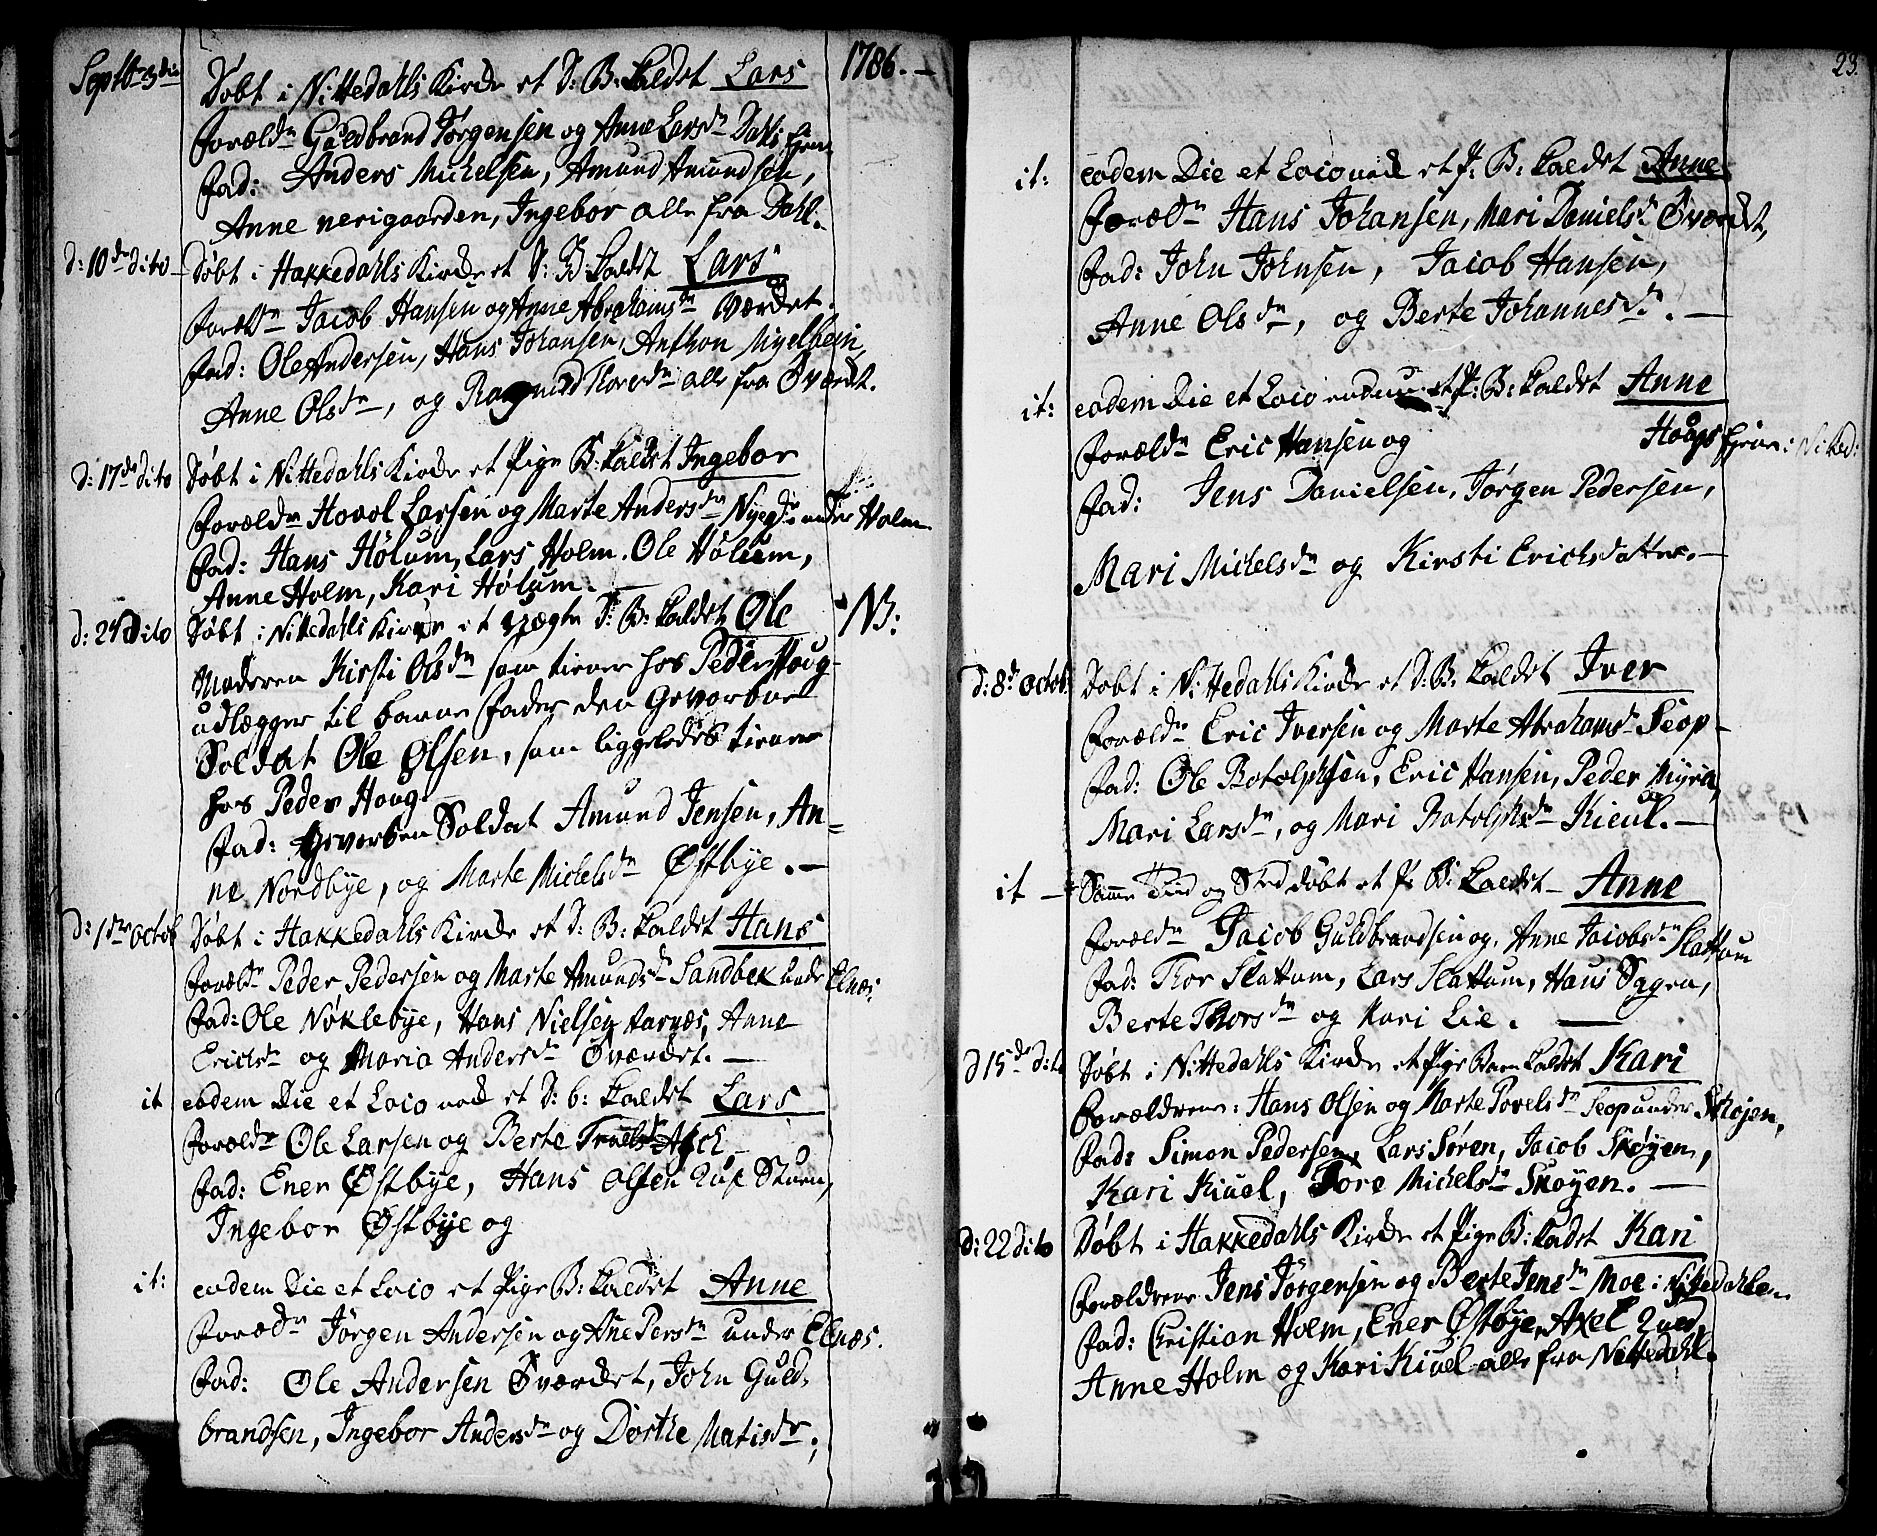 1786. —
Septbr 3die Døbt i Nittedahls Kirche et D: B: kaldet Lars
Foræld:n Guldbrand Jørgensen og Anne Larsdn Dahls Ejen
Fad: Anders Michelsen, Amund Amundsen,
Anne nerigaarden, Ingebor alle fra Dahl.
d: 10de dito Døbt i Hakkedahls Kirche et D: B: kaldet Lars
Foræld:n Jacob Hansen og Anne Abrahamsdn Værdet.
Fad: Ole Andersen, Hans Johansen, Anthon
Anne Olsdn, og Ragnild alle fra Øværdt.
d: 17de dito Døbt i Nittedahls Kirche et Pige B: kaldet Ingebor
Foræld:n Hovol Larsen og Marte Andersdn under Holm
Fad: Hans Hølum, Lars Holm. Ole Hølum,
Anne Holm, Kari Hølum. —
d: 24 dito Døbt i Nittedahls Kirche et Uægte D: B: kaldet Ole NB:
Moderen Kirsti Olsdn som tiener hos Peder Houg
udlægger til barne Fader den Gevorbne
Soldat Ole Olsen, som liggeledes tiener
hos Peder Houg —
Fad: Gevorben Soldat Amund Jensen, An=
ne Nordbye, og Marte Michelsdn Østbye. —
d: 1ste Octob Døbt i Hakkedahls Kirche et D: B: kaldet Hans
Foræld:n Peder Pedersen og Marte Amundsdn Sandbek under Elnæs:
Fad: Ole Nøklebye, Hans Nielsen Aarnæs, Anne
Erichsdn og Maria Andersdn Øværdet. —
it eodem Die et Loco nok et D: b: kaldet Lars
Foræld:n Ole Larsen og Berte Truelsdn Asch
Fad: Ener Østbye, Hans Olsen Stuen,
Ingebor Østbye og
it: eodem Die et Loco et Pige B: kaldet Anne
Foræd:n Jørgen Andersen og Ane Persdn under Elnæs.
Fad: Ole Andersen Øværdet, John Guld,
brandsen, Ingebor Andersdn og Dorthe Matisdr.
23.
it: eodem Die et Loco nok et P: B: kaldet Anne
Foræld:n Hans Johansen, Mari Danielsd: Øværdt,
Fad: John Johnsen, Jacob Hansen,
Anne Olsdn, og Berte Johannesd:n. —
it: eodem Die et Loco endnu et P: B: kaldet Anne
Foræld:n Eric Hansen og Hougs Ejen i Nitted:
Fad: Jens Danielsen, Jørgen Pedersen,
Mari Michelsdn og Kirsti Erichsdatter. —
d: 8de Octob: Døbt i Nittedahls Kirche et D: B: kaldet Iver
Foræld:n Eric Iversen og Marte Abrahamsdn Seop —
Fad: Ole Botolphsen, Eric Hansen, Peder Myra,
Mari Larsdn, og Mari Botolphsdn Kieul. —
it — Samme Tiid og Sted døbt et P: B: kaldet — Anne
Foræld:n Jacob Guldbrandsen og Anne Jacobsdn Slattum
Fad: Thor Slattum, Lars Slattum, Hans Sagen,
Berte Thorsdn og Kari Lie. —
d 15de dito Døbt i Nittedahls Kirche et Pige Barn kaldet Kari
Forældrene: Hans Olsen og Marte Povelsdn Seop under Skøjen,
Fad: Simon Pedersen, Lars Søren, Jacob Skøyen,
Kari Kiuel, Tore Michelsdn Skøyen. —
d: 22 dito Døbt i Hakkedahls Kirche et Pige B: kaldet Kari
Forældrene Jens Jørgensen og Berte Jensdn Moe i Nittedahlen
Fad: Christian Holm, Ener Østbye, Axel
Anne Holm og Kari Kiuel alle fra Nittedahl.